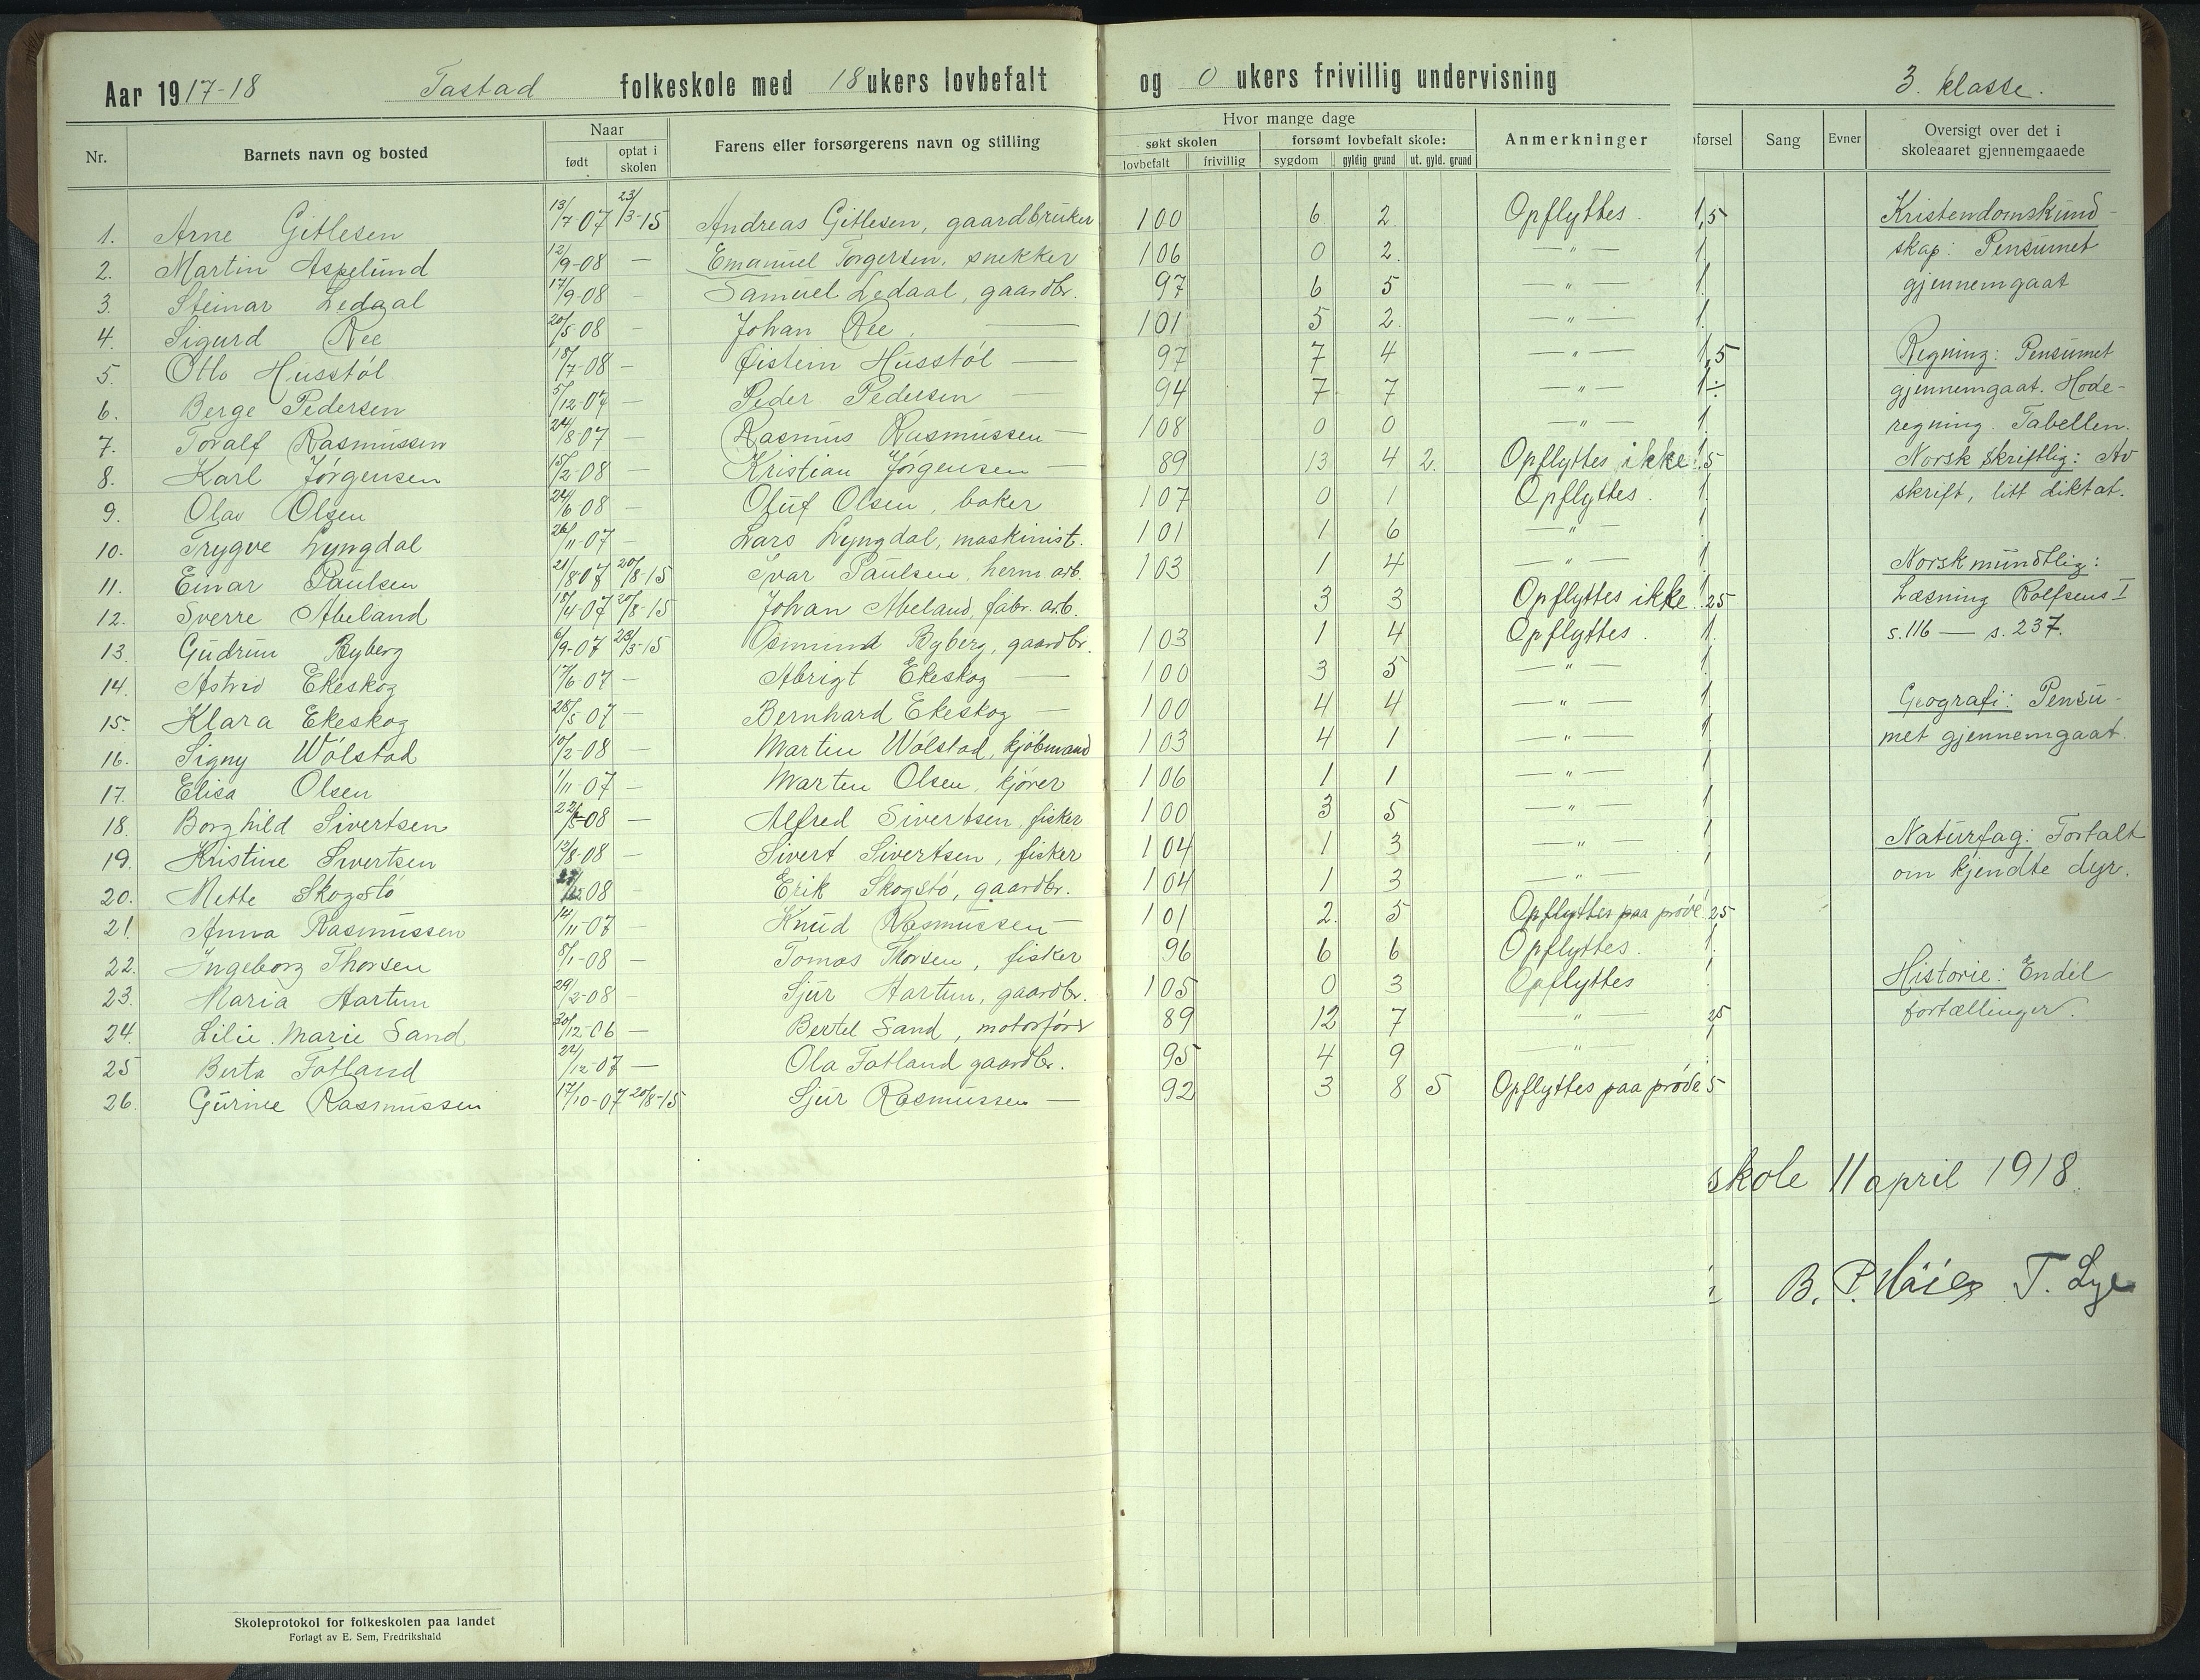 Aar 1917-18 Tastad folkeskole med 18 ukers lovbefalt og 0 ukers frivillig undervisning 3. klasse.
Nr. Barnets navn og bosted Naar født optat i skolen Farens eller forsørgerens navn og stilling Hvor mange dage søkt skolen lovbefalt frivillig forsømt lovbefalt skole: sygdom gyldig grund ut. gyld. grund Anmerkninger pførsel Sang Evner Oversigt over det i skoleaaret gjennemgaaede
1. Arne Gitlesen 13/7-07 23/3-15 Andreas Gitlesen, gaardbruker 100 6 2 Opflyttes. 1,5
2. Martin Aspelund 12/9-08 — Emanuel Torgersen, snekker 106 0 2. — " — 1
3. Steinar Ledaal 17/9-08 - Samuel Ledaal, gaardbr. 97 6 5 — " — 1
4. Sigurd Ree 20/5-08 — Johan Ree, — 101 5 2. — " — 1
5. Otto Husstøl 18/7-08 — Øistein Husstøl — 97 7 4 — " — 1,5
6. Berge Pedersen 5/12-07 — Peder Pedersen — 94 7 7 — " — 1÷
7. Toralf Rasmussen 24/8 07 — Rasmus Rasmussen — 108 0 0 — " — 1
8. Karl Jørgensen 15/2-08 — Kristian Jørgensen — 89 13 4 2. Opflyttes ikke. 1,5
9. Olav Olsen 24/6 08 — Oluf Olsen, baker 107 0 1 Opflyttes. 1
10. Trygve Lyngdal 26/11-07 — Lars Lyngdal, maskinist. 101 1 6 — " — 1
11. Einar Paulsen 21/8 07 20/8-15 Ivar Paulsen, herm. arb. 103 1 4 — " — 1
12. Sverre Abeland 18/4-07 20/8-15 Johan Abeland, fabr. arb. 3 3 Opflyttes ikke. 25
13. Gudrun Ryberg 6/9-07 23/3-15 Osmund Ryberg, gaardbr. 103 1 4 Opflyttes. 1
14. Astrid Ekeskog 17/6-07 — Abrigt Ekeskog — 100 3 5 — " — 1
15. Klara Ekeskog 28/5 07 — Bernhard Ekeskog — 100 4 4 — " — 1
16. Signy Wølstad 10/2-08 — Martin Wølstad, kjøbmand 103 4 1 — " — 1
17. Elisa Olsen 1/11-07 — Marten Olsen, kjører 106 1 1 — " — 1
18. Borghild Sivertsen 22/5-08 — Alfred Sivertsen, fisker 100 3 5 — " — 1
19. Kristine Sivertsen 12/8-08 — Sivert Sivertsen, fisker 104 1 3 — " — 1
20. Mette Skogstø 08 — Erik Skogstø, gaardbr. 104 1 3 — " — 1
21. Anna Rasmussen 14/11-07 — Knud Rasmussen — 101 2. 5 Opflyttes paa prøve. 25
22. Ingeborg Thorsen 8/1-08 — Tomas Thorsen, fisker 96 6 6 Opflyttes. 1
23. Maria Aartun 29/2-08 — Sjur Aartun, gaardbr. 105 0 3 Opflyttes
24. Lilie Marie Sand 30/12-06 — Bertel Sand, motorfører 89 12 7 " — 25
25 Berta Fotland 22/12-07 — Ola Fotland gaardbr. 95 4 9 — " —
26. Gurine Rasmussen 17/10-07 20/8-15 Sjur Rasmussen — 92 3 8 5 Opflyttes paa prøve 5
Kristendomskund-
skap: Pensumet
gjennemgaat
Regning: Pensumet
gjennemgaat. Hode-
regning. Tabellen.
Norsk skriftlig: Av
skrift, litt diktat.
Norsk mundtlig:
Læsning Rolfsens I
s. 116 — s. 237.
Geografi: Pensu-
met gjennemgaat.
Naturfag: Fortalt
om kjendte dyr.
Historie: Endel
fortællinger.
skole 11 april 1918.
B. P. T. Lye
Skoleprotokol for folkeskolen paa landet
Forlagt av E. Sem, Fredrikshald